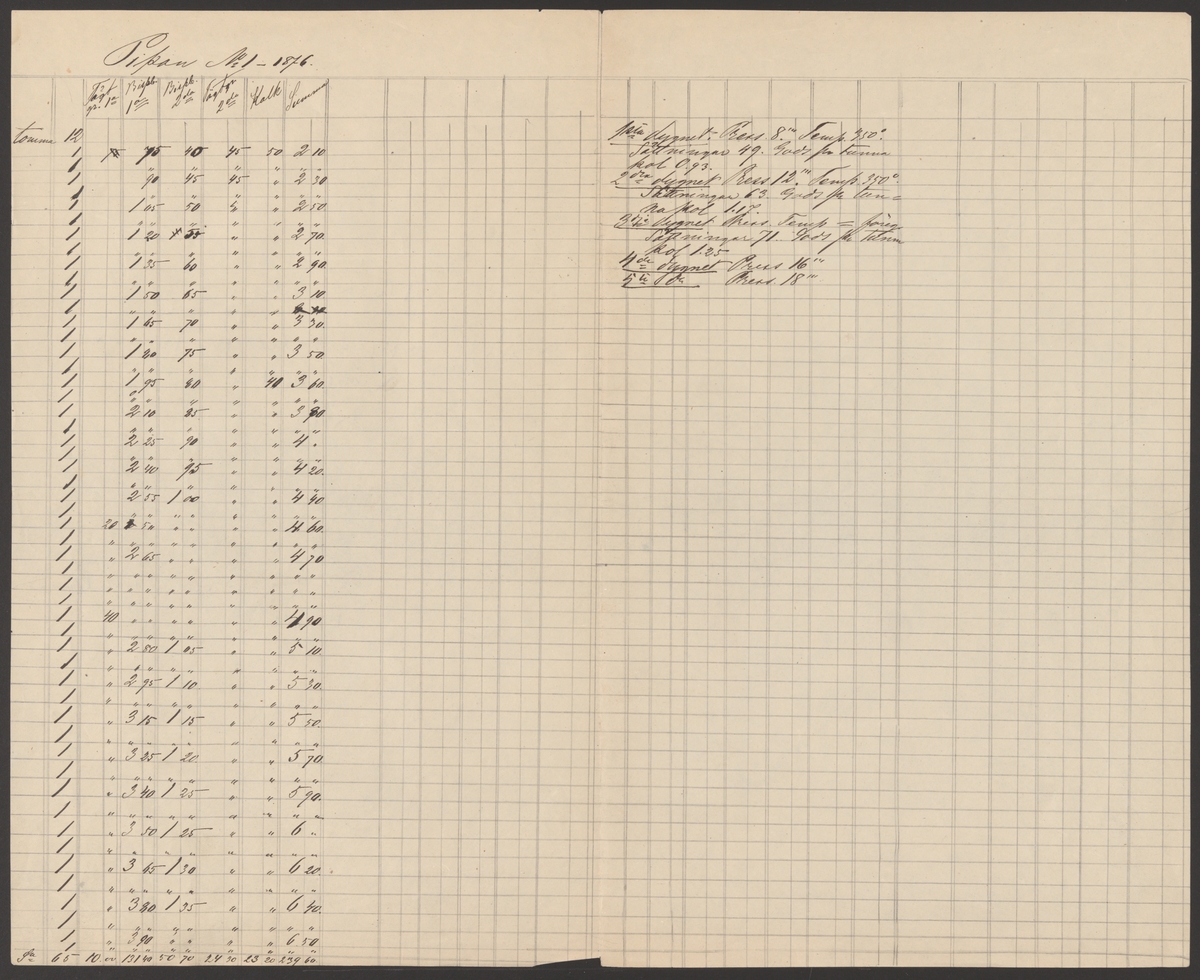 Pipan No 1 – 1876.
Bispb. 1a Bispb. 2da 2da Kalk Summa
tomma 12
1 75 40 45 50 2 10
1 " " " " " "
1 90 45 45 " 2 30
1 " " " " " "
1 1 05 50 " " 2 50
1 " " " " " "
1 1 20 55 " " 2 70
1 " " " " " "
1 1 35 60 " " 2 90
1 " " " " " "
1 1 50 65 " " 3 10
1 " " " " "
1 1 65 70 " " 3 30
1 " " " " " "
1 1 80 75 " " 3 50
1 " " " " " "
1 1 95 80 " 40 3 60
1 " " " " " "
1 2 10 85 " " 3 80
1 " " " " " "
1 2 25 90 " " 4 "
1 " " " " " "
1 2 40 95 " " 4 20
1 " " " " " "
1 2 55 1 00 " " 4 40
1 " " " " " " " "
1 20 2 50 " " " " 4 60
1 " " " " " " " " "
1 " 2 65 " " " " 4 70
1 " " " " " " " " "
1 " " " " " " " " "
1 " " " " " " " " "
1 40 " " " " " " 4 90
1 " " " " " " " " "
1 " 2 80 1 05 " " 5 10
1 " " " " " " " " "
1 " 2 95 1 10 " " 5 30
1 " " " " " " " " "
1 " 3 15 1 15 " " 5 50
1 " " " " " " " " "
1 " 3 25 1 20 " " 5 70
1 " " " " " " " " "
1 " 3 40 1 25 " " 5 90
1 " " " " " " " " "
1 " 3 50 1 25 " " 6 "
1 " " " " " " " " "
1 " 3 65 1 30 " " 6 20
1 " " " " " " " " "
1 " 3 80 1 35 " " 6 40
1 " " " " " " " " "
1 " 3 90 " " " " 6 50
65 10 00 131 40 50 70 24 30 23 20 239 60
1sta dygnet. Press. 8"' Temp. 350°.
Sättningar 49. Gods pr tunna
kol 0.93.
2dra dygnet Press 12"' Temp. 350°.
Sättningar 63. Gods pr tun=
na kol 1.17.
3die dygnet Press. Temp = föreg
Sättningar 71. Gods pr tunna
kol 1.25
4de dygnet Press 16"'
5te do Press. 18"'